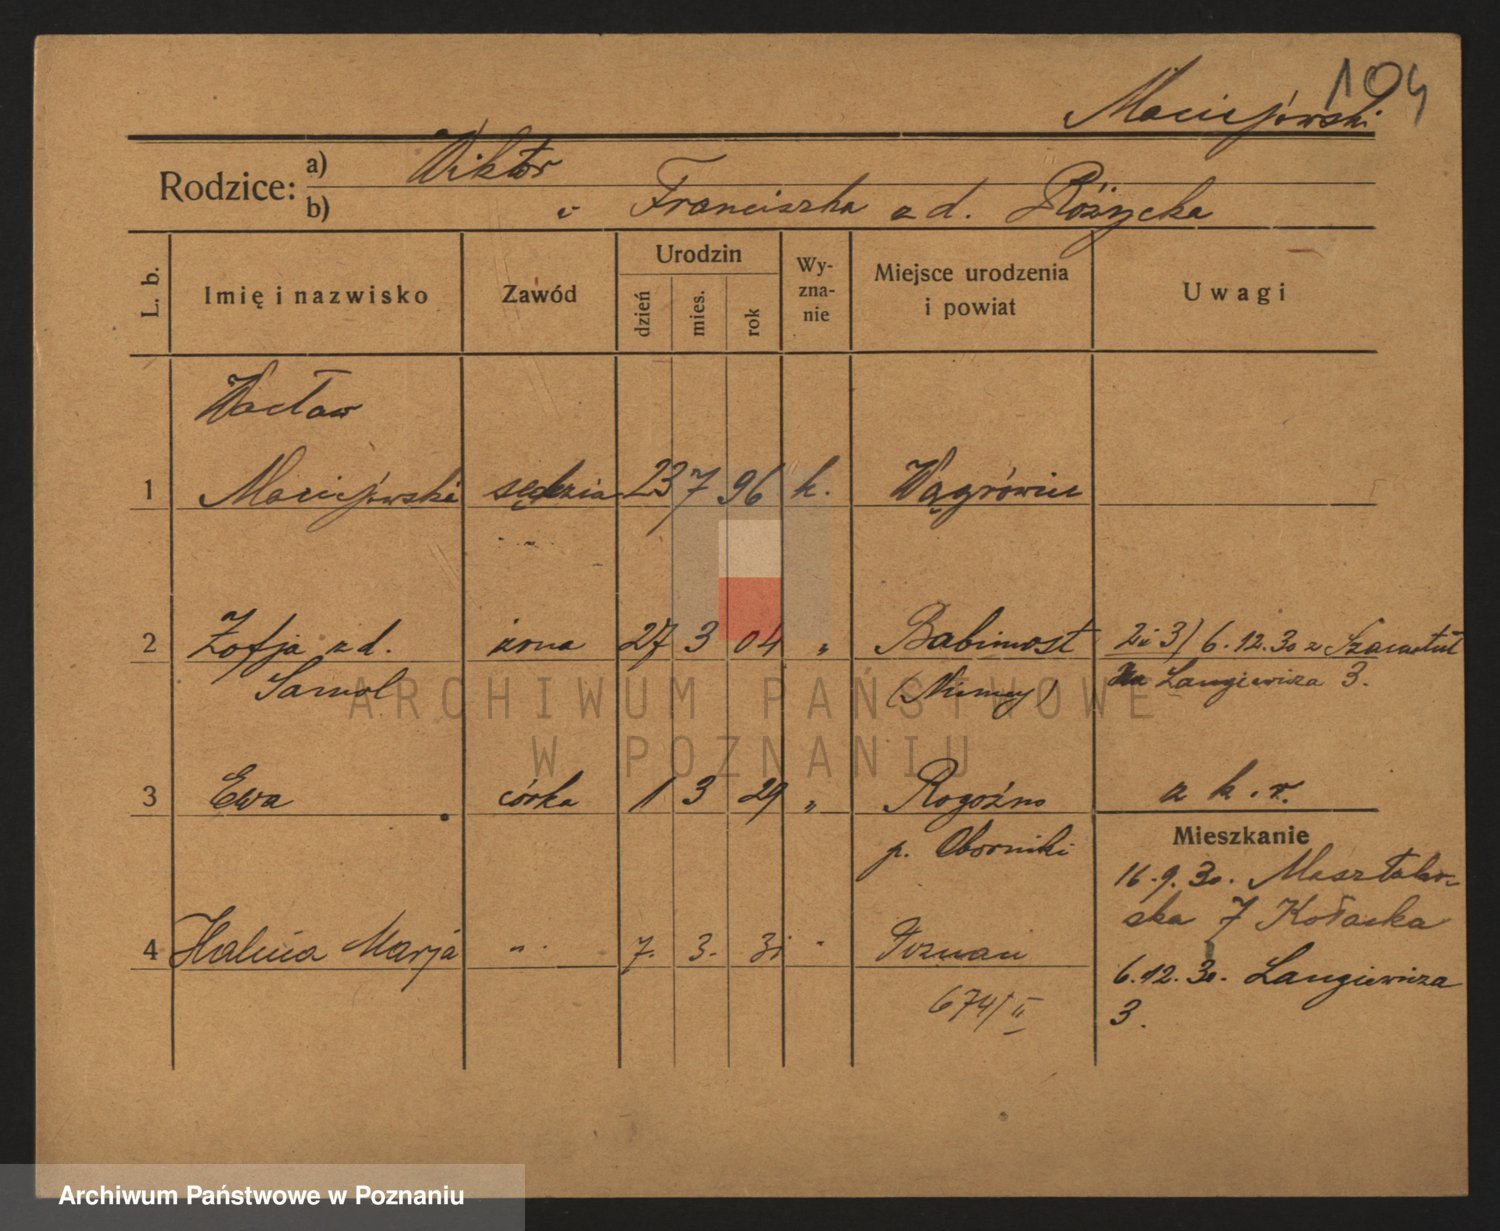 104
Maciejewski
Rodzice: a) Wiktor
b) i Franciszka z d. Różycka
L. b.
Imię i nazwisko
Zawód
Urodzin
dzień
mies.
rok
Wy-
zna-
nie
Miejsce urodzenia
i powiat
Uwagi
Wacław
1 Maciejewski sędzia 23 7 96 k. Wągrówiec
2 Zofja z d. żona 27 3 04 " Babimost 2 i 3) 6.12.30 z Szamotuł
Samol (Niemcy) Langiewicza 3.
3 Ewa córka 1 3 29 " Rogoźno z k. r.
p. Oborniki
Mieszkanie
16.9.30. Masztalar-
ska 7 Kołacka
4 Halina Marja " 7. 3. 31 " Poznań
6.12.30. Langiewicza
674/II
3.
ARCHIWUM PAŃSTWOWE
W POZNANIU
Archiwum Państwowe w Poznaniu